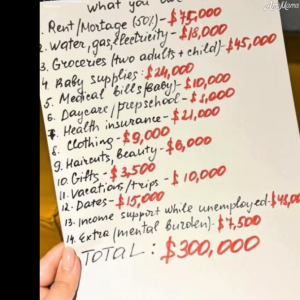 what you
1. Rent/Mortage (50%) - $75,000
2. Water, gas, electricity - $18,000
3. Groceries (two adults + child) - $45,000
4. Baby supplies: $24,000
5. Medical bills (Baby) - $10,000
6. Daycare/prepschool -
7. Health insurance - $21,000
8. Clothing - $9,000
9. Haircuts, Beauty - $6,000
10. Gifts - $3,500
11. Vacations/trips - $10,000
12. Dates - $15,000
13. Income support while unemployed -
14. Extra (mental burden) - $7,500
TOTAL: $300,000